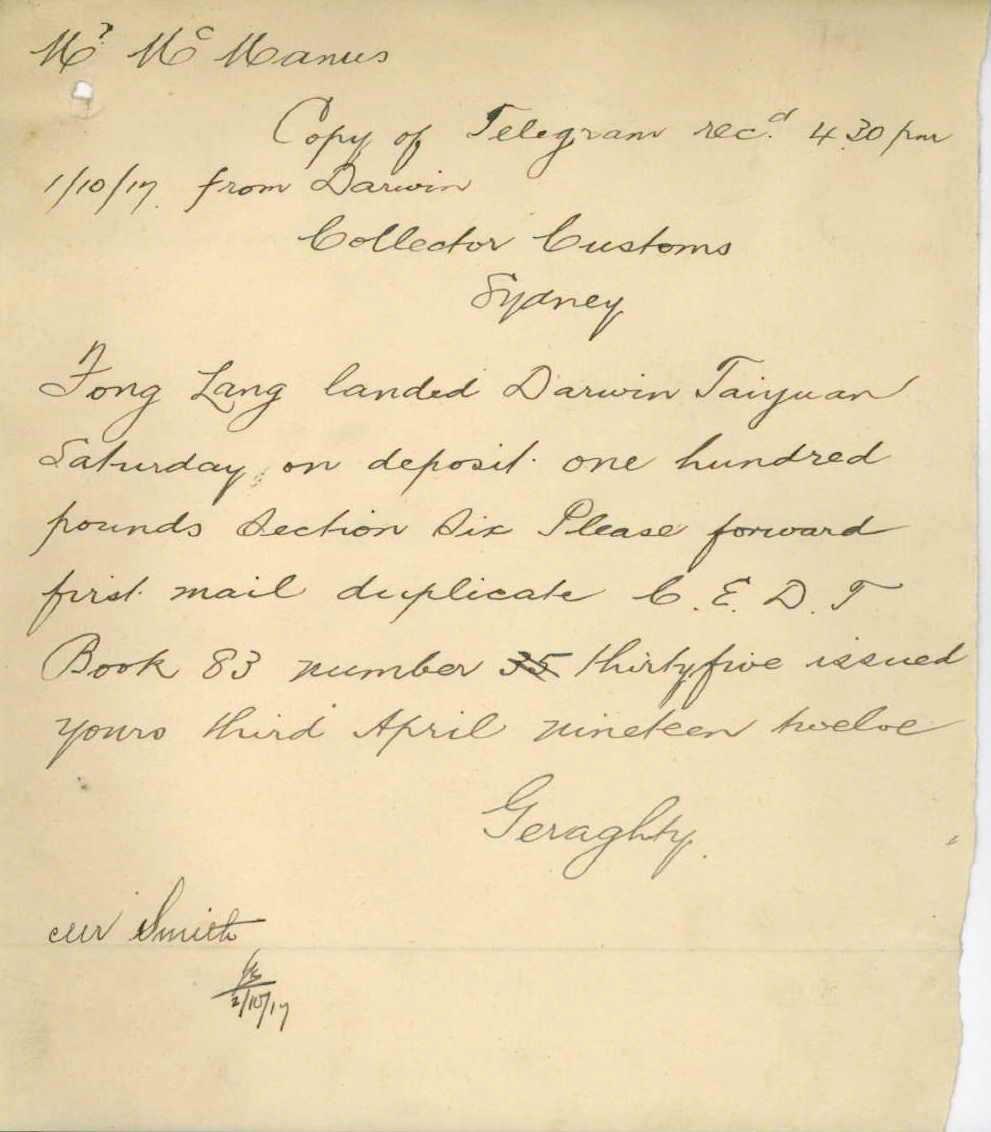 Mr McManus
Copy of Telegram rec.d 4.30 pm
1/10/17. from Darwin
Collector Customs
Sydney
Fong Lang landed Darwin Taiyuan
Saturday on deposit one hundred
pounds Section Six Please forward
first mail duplicate C. E. D. T
Book 83 number 35 thirtyfive issued
yours third April nineteen twelve
Geraghty.
Smith
2/10/17